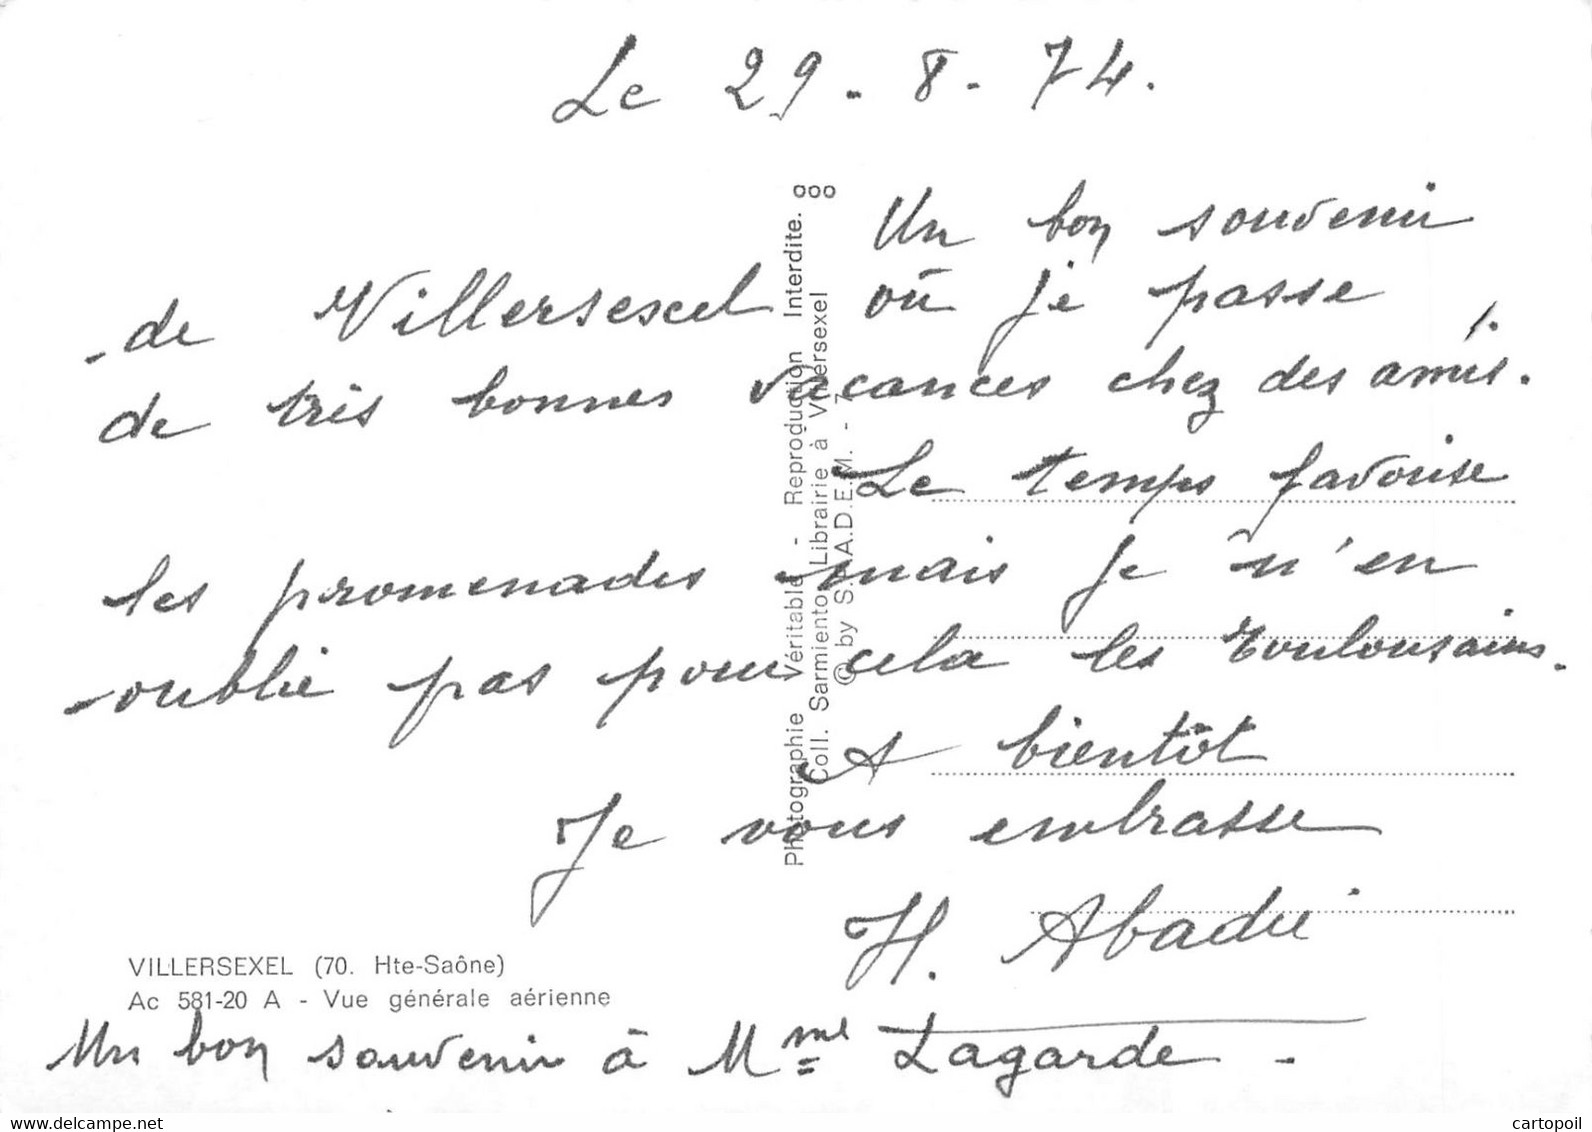 Le 29.8.74.
Un bon souvenir
de Villersexel où je passe
de très bonnes vacances chez des amis.
Le temps favorise
les promenades mais je n'en
oublie pas pour cela les Toulousains.
A bientôt
Je vous embrasse
H. Abadie
Un bon souvenir à Mme Lagarde -
VILLERSEXEL (70. Hte-Saône)
Ac 581-20 A - Vue générale aérienne
Photographie Véritable - Reproduction Interdite.
Coll. Sarmiento, Librairie à Villersexel
© by S.A.A.D.E.M. - 7
www.delcampe.net
cartopoil